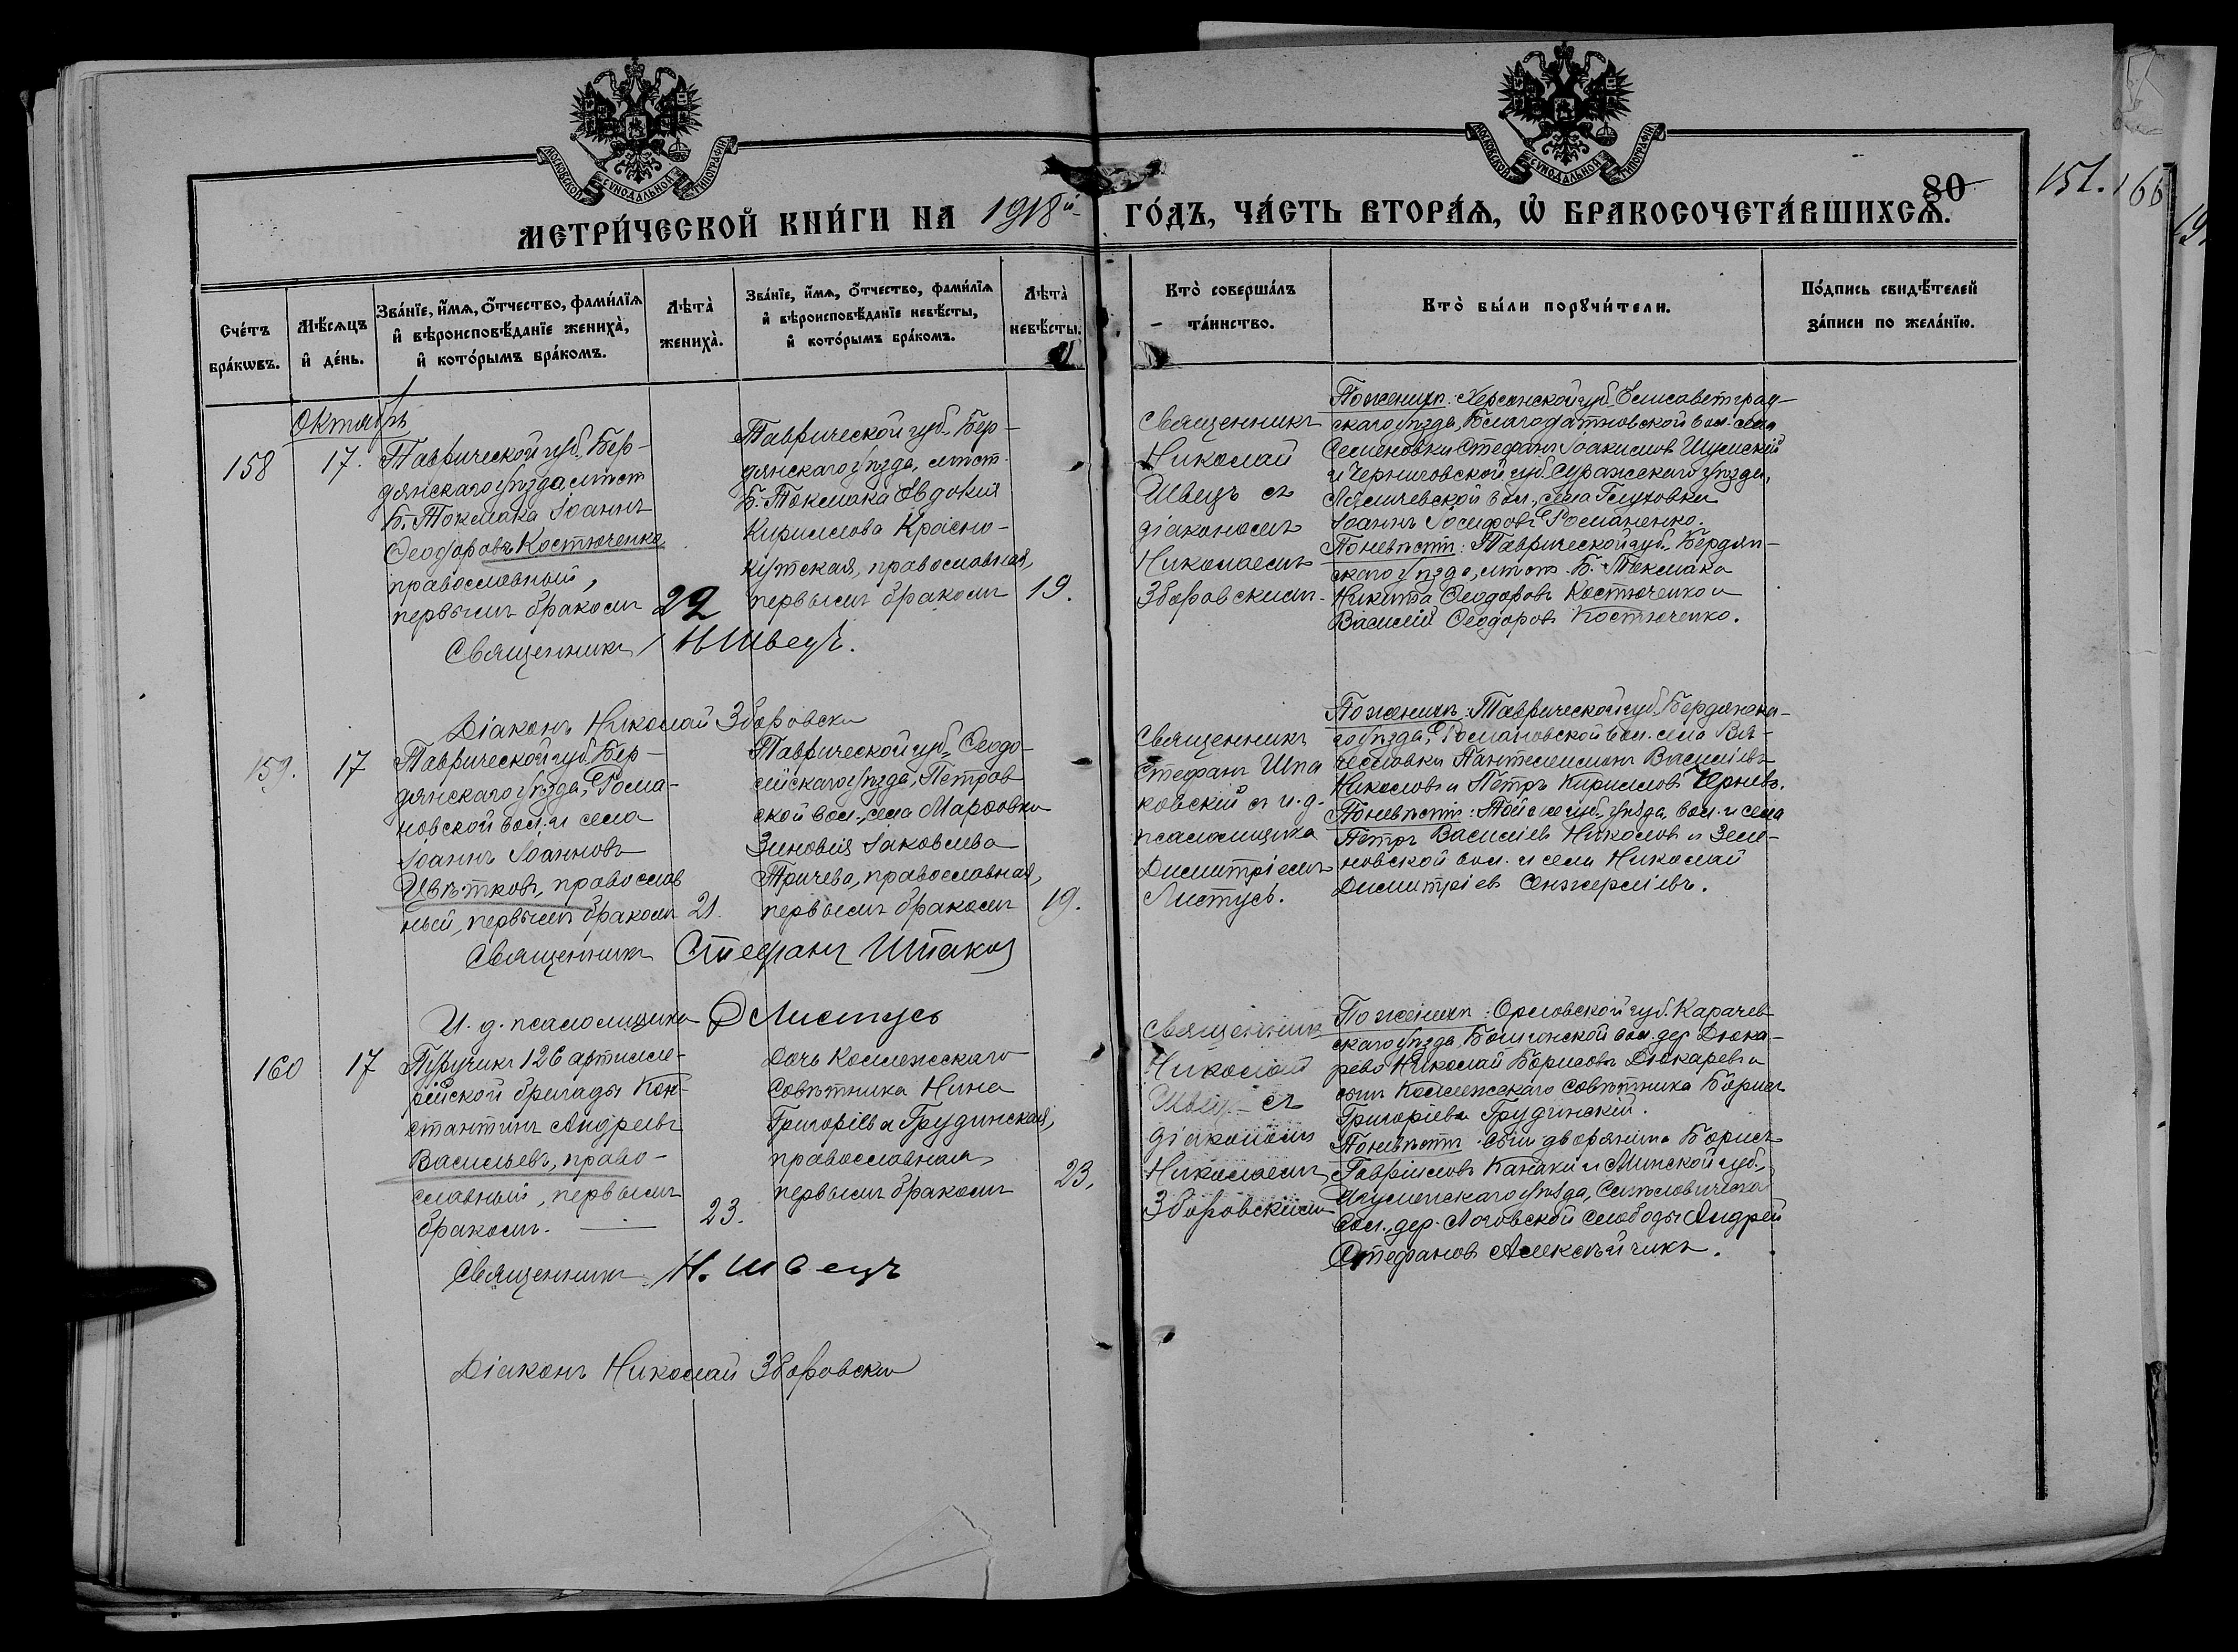 МОСКОВСКОЙ СУНОДАЛЬНОЙ ТИПОГРАФІИ
МОСКОВСКОЙ СУНОДАЛЬНОЙ ТИПОГРАФІИ
80
151.
166
МЕТРИ́ЧЕСКОЙ КНИ́ГИ НА 1918й ГО́ДЪ, ЧА́СТЬ ВТОРА́Я, Ѽ БРАКОСОЧЕТА́ВШИХСЯ.
Сче́тъ бра́кѡвъ.
Мѣ́сяцъ и҆ де́нь.
Зва́нїе, и҆́мѧ, ѻ҆́тчество, фами́лїѧ
и҆ вѣроисповѣ́данїе жениха̀,
и҆ кото́рымъ бра́комъ.
Лѣта̀ жениха̀.
Зва́нїе, и҆́мѧ, ѻ҆́тчество, фами́лїѧ
и҆ вѣроисповѣ́данїе невѣ́сты,
и҆ кото́рымъ бра́комъ.
Лѣта̀ невѣ́сты.
Кто̀ соверша́лъ
та́инство.
Кто̀ бы́ли порꙋчи́тели.
По́дпись свидѣ́телей
за́писи по жела́нїю.
Октябрь
158
17.
Таврической губ. Бер-
дянскаго уѣзда, мѣст
Б. Токмака Іоаннъ
Ѳеодоровъ Костюченко
православный,
первымъ бракомъ
22
Таврической губ. Бер-
дянскаго уѣзда, мѣст.
Б. Токмака Евдокія
Кириллова Красно-
кутская, православная,
первымъ бракомъ
19.
Священникъ
Николай
Швецъ съ
діакономъ
Николаемъ
Зборовскимъ.
По женихѣ: Херсонской губ. Елисаветград-
скаго уѣзда, Благодатновской вол. села
Семеновки Стефанъ Іоакимовъ Шумскій
и Черниговской губ. Суражскаго уѣзда,
Лялическской вол., села Глуховки
Іоаннъ Іосифовъ Романенко.
По невѣстѣ: Таврической губ. Бердян-
скаго уѣзда, мѣст. Б. Токмака
Никита Ѳеодоровъ Костюченко и
Василій Ѳеодоровъ Костюченко.
Священникъ Н Швецъ.
Діаконъ Николай Зборовски
159.
17
Таврической губ. Бер-
дянскаго уѣзда, Рома-
новской вол. и села
Іоаннъ Іоанновъ
Цвѣтковъ, православ
ный, первымъ бракомъ
21.
Таврической губ. Ѳеодо-
сійскаго уѣзда, Петров
ской вол., села Марфовки
Зиновія Іаковлева
Тричева, православная,
первымъ бракомъ
19.
Священникъ
Стефанъ Шпа
ковскій съ и. д.
псаломщика
Димитріемъ
Листусъ.
По женихѣ: Таврической губ. Бердянска-
го уѣзда, Романовской вол. села Вя-
чеславки Пантелеимонъ Василіевъ
Николовъ и Петръ Кирилловъ Черневъ.
По невѣстѣ: Той же губ., уѣзда, вол. и села
Петръ Василіевъ Николовъ и Зеле-
новской вол. и села Николай
Димитріевъ Енжерліевъ.
Священникъ Стефанъ Шпаков
И. д. псаломщика Д Листусъ
160
17
Поручикъ 126 артилле-
рійской бригады Кон-
стантинъ Андреевъ
Васильевъ, право-
славный, первымъ
бракомъ.
23.
Дочь Коллежскаго
Совѣтника Нина
Григоріева Грудинская,
православная,
первымъ бракомъ
23.
Священникъ
Николай
Швец съ
діакономъ
Николаемъ
Зборовскимъ
По женихѣ: Орловской губ. Карачев
скаго уѣзда, вол. дер. Дюка-
рево Николай Борисовъ Дюкаревъ и
сынъ Коллежскаго Совѣтника Борисъ
Григоріевъ Грудинскій.
По невѣстѣ: Сынъ дворянина Борисъ
Гавріиловъ Канаки и Минской губ.,
Игуменскаго уѣзда,
вол., дер. Слободы Андрей
Стефановъ Алексѣйчикъ.
Священникъ Н. Швецъ
Діаконъ Николай Зборовски